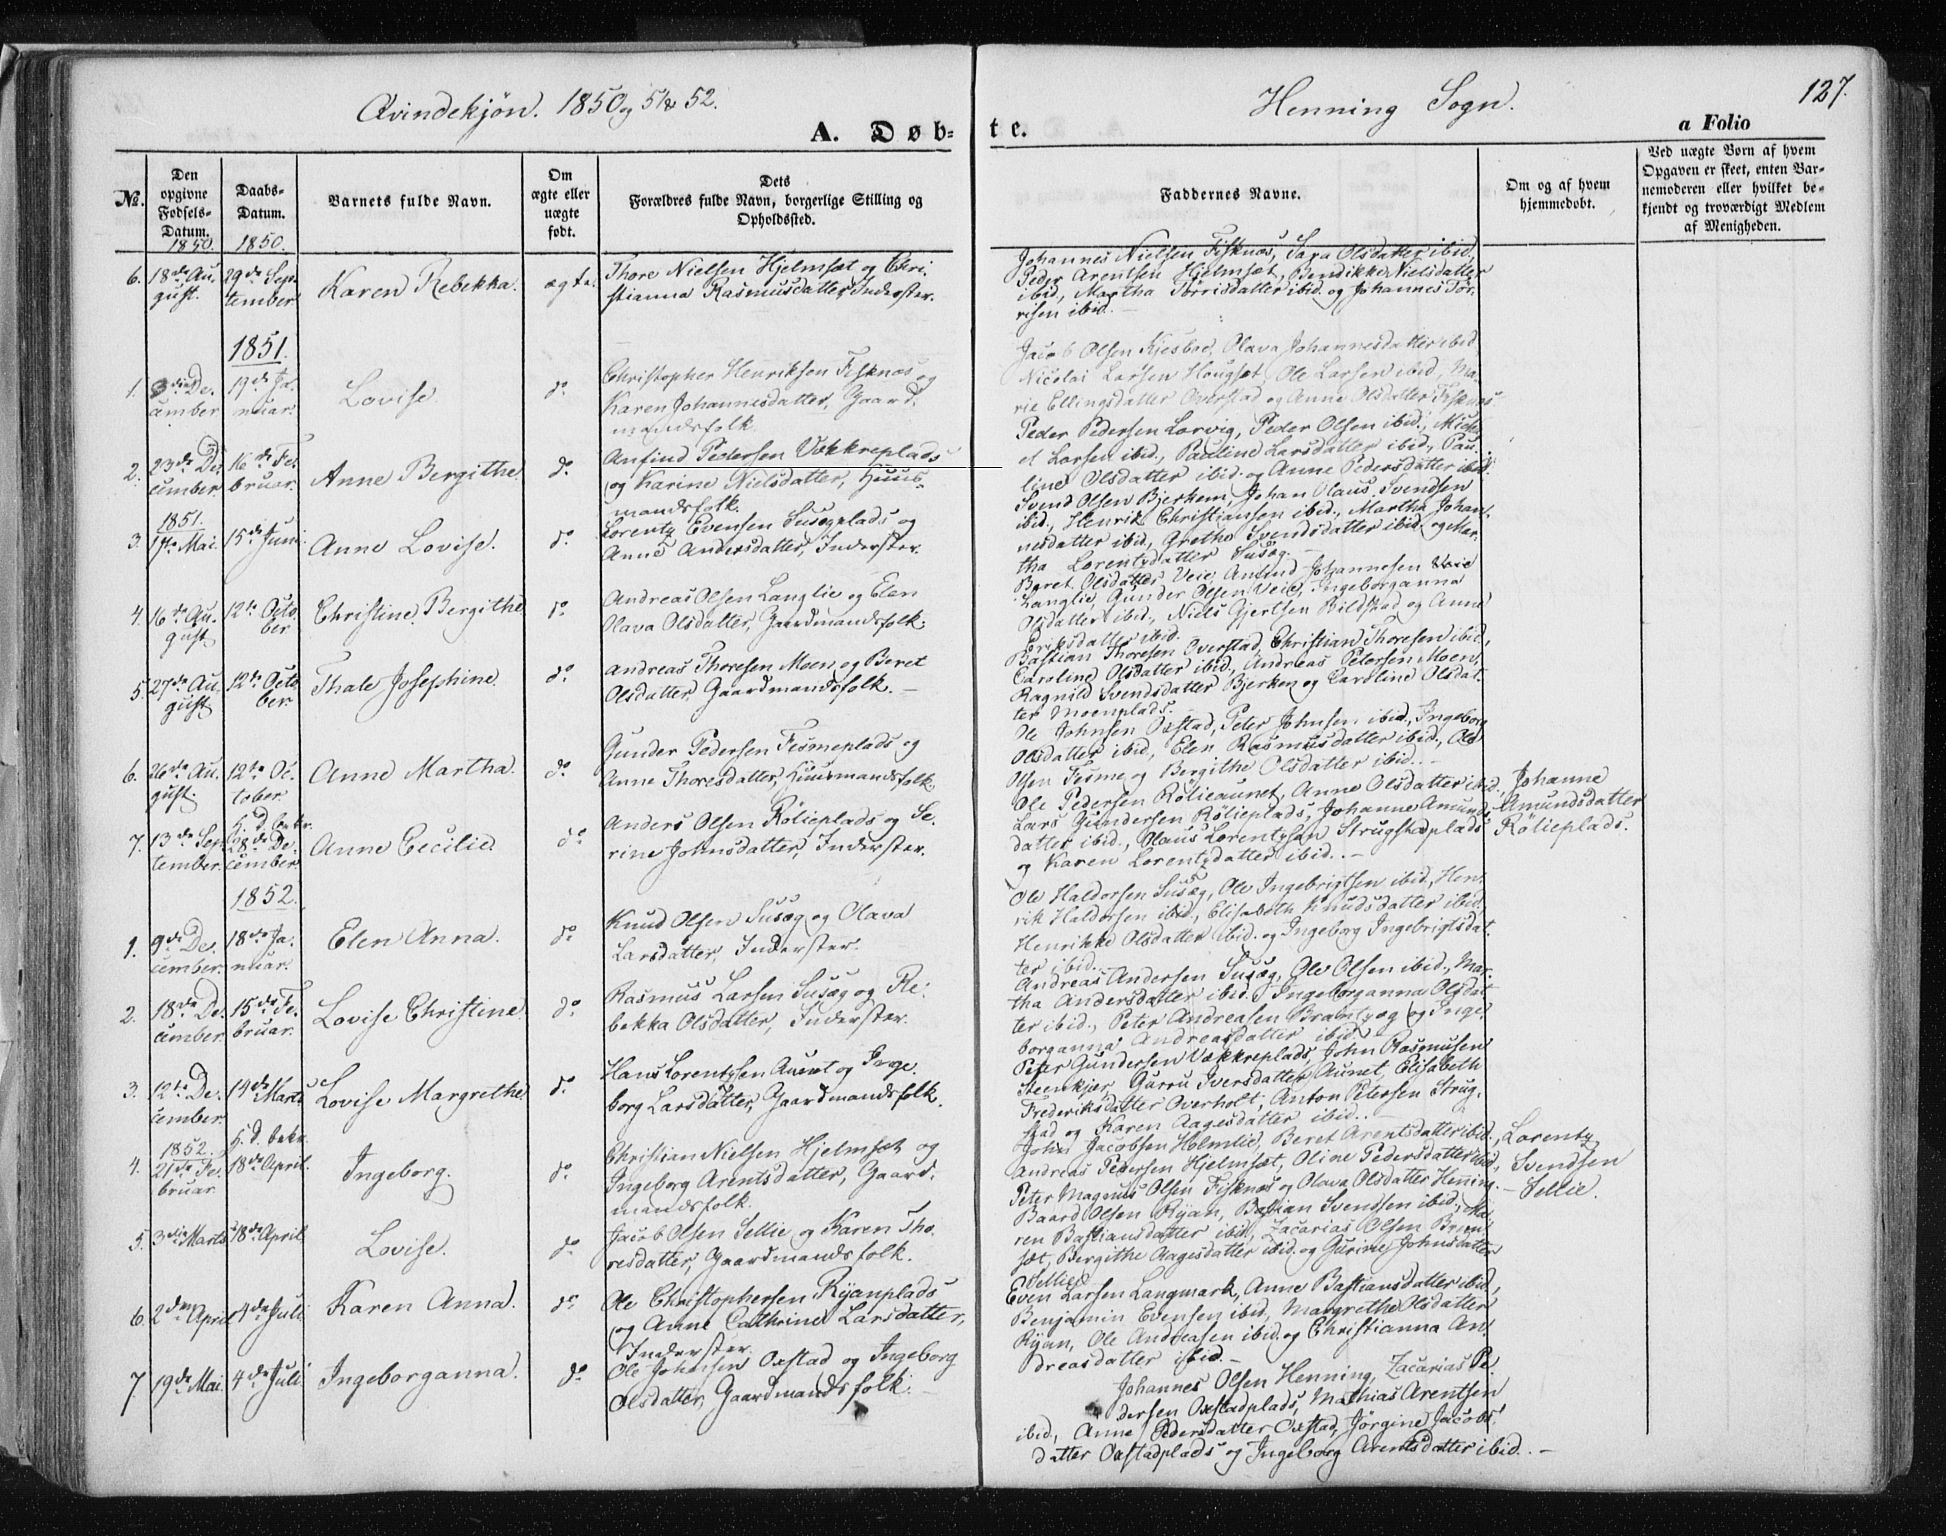 Qvindekjøn. 1850 og 51 & 52.
Henning Sogn.
127.
A. Døb-
te.
a Folio
No.
Den opgivne Fødsels-Datum.
Daabs-Datum.
Barnets fulde Navn.
Om ægte eller uægte født.
Dets Forældres fulde Navn, borgerlige Stilling og Opholdssted.
Faddernes Navne.
Om og af hvem hjemmedøbt.
Ved uægte Børn af hvem Opgaven er skeet, enten Barnemoderen eller hvilket bekjendt og troværdigt Medlem af Menigheden.
1850. 1850.
6. 18de August. 29de September Karen Rebekka. ægte. Thore Nielsen Hjelmsæt og Christianna Rasmusdatter, Inderster.
Johannes Nielsen Fisknæs, Sara Olsdatter ibid,
Peder Arentsen Hjelmsæt, Bendikke Nielsdatter
ibid, Martha Tørrisdatter ibid. og Johannes Tør-
risen ibid. -
1851.
1. 8de December 19de Januar. Lovise. do. Christopher Henriksen Fisknæs og Karen Johannesdatter, Gaardmandsfolk.
Jacob Olsen Kjesboe, Olava Johannesdatter ibid
Nicolai Larsen Hougsæt, Ole Larsen ibid, Ma-
rie Ellingsdatter Overstad og Anne Olsdatter Fisknæs
2. 23de December 16de Februar. Anne Bergithe. do. Anfind Pedersen Vækkreplads og Karine Nielsdatter, Huusmandsfolk.
Peder Pedersen Lorvig, Peder Olsen ibid., Mick-
el Larsen ibid., Pauline Larsdatter ibid., Pau-
line Olsdatter ibid. og Anne Pedersdatter ibid.
1851.
3. 17de Mai. 15de Juni. Anne Lovise. do. Lorentz Evensen Susægplads og Anne Andersdatter, Inderster.
Svend Olsen Bjerkem, Johan Olaus Svendsen
ibid., Henrik Christiansen ibid., Martha Johan-
nesdatter ibid, Grethe Svendsdatter ibid. og Mar-
tha Lorentzdatter Susæg. -
4. 16de August 12te October Christine Bergithe do. Andreas Olsen Langlie og Elen Olava Olsdatter, Gaardmandsfolk.
Beret Olsdatter Veie, Amund Johannesen
Langlie, Gunder Olsen Veie, Ingeborganna
Olsdatter ibid., Niels Gjertsen Bildstad og Anne
Eriksdatter ibid.
5. 27de August 12te October. Thale Josephine. do. Andreas Thoresen Moen og Beret Olsdatter, Gaardmandsfolk. -
Bastian Thoresen Overstad, Christian Thoresen ibid,
Caroline Olsdatter ibid., Andreas Petersen Moen,
Ragnild Svendsdatter Bjerken og Caroline Olsdat-
ter Moenplads.
6. 26de August. 12te October. Anne Martha. do. Gunder Pedersen Fesmeplads og Anne Thoresdatter, Huusmandsfolk.
Ole Johnsen Oxstad, Peter Johnsen ibid., Ingeborg
Olsdatter ibid, Elen Rasmusdatter ibid., Ole
Olsen Fesme og Bergithe Olsdatter ibid. -
7. 13de September. H. D. bekr. 18de December Anne Cecilie. do. Anders Olsen Rølieplads og Serine Johnsdatter, Inderster.
Ole Pedersen Rølieaunet, Anne Olsdatter ibid,
Lars Gundersen Rølieplads, Johanne Amunds-
datter ibid., Olaus Lorentzsen Strugstadplads
og Karen Lorentzdatter ibid. -
Johanne Amundsdatter Rølieplads.
1852.
1. 9de December. 18de Januar. Elen Anna. do. Knud Olsen Susæg og Olava Larsdatter, Inderster.
Ole Haldorsen Susæg, Ole Ingebrigtsen ibid., Hen-
rik Haldorsen ibid., Elisabeth Knudsdatter ibid.
Henrikke Olsdatter ibid. og Ingeborg Ingebrigtsdat-
ter ibid.
2. 18de December. 15de Februar. Lovise Christine. do. Rasmus Larsen Susæg og Rebekka Olsdatter, Inderster.
Andreas Andersen Susæg, Ole Olsen ibid., Mar-
tha Andersdatter ibid., Ingeborganna Olsdat-
ter ibid., Peter Andreasen Brandsæg og Inge-
borganna Andreasdatter ibid.
3. 12te December. 14de Marts Lovise Margrethe do. Hans Lorentzsen Aunet og Ingeborg Larsdatter, Gaardmandsfolk.
Peter Gundersen Vækkreplads, John Rasmusen
Steenkjær, Gurru Iversdatter Aunet, Elisabeth
Frederiksdatter Overholt, Anton Petersen Strug-
stad og Karen Aagesdatter ibid. -
1852. H. D. bekr.
4. 21de Februar 18de April. Ingeborg. do. Christian Nielsen Hjelmsæt og Ingeborg Arentsdatter, Gaardmandsfolk.
John Jacobsen Holmlie, Beret Arentsdatter ibid.,
Andreas Pedersen Hjelmsæt, Oline Pedersdatter ibid,
Peter Magnus Olsen Fisknæs og Olava Olsdatter Henning. -
Lorentz Svendsen Sellie.
5. 3die Marts 18de April Lovise. do. Jacob Olsen Sellie og Karen Thoresdatter, Gaardmandsfolk.
Baard Olsen Ryan, Bastian Svendsen ibid, Ma-
ren Bastiansdatter ibid, Zacarias Olsen Brem-
sæt, Bergithe Aagesdatter ibid. og Gurine Johnsdatter
Sellie.
6. 2den April 4de Juli Karen Anna. do. Ole Christophersen Ryanplads og Anne Cathrine Larsdatter, Inderster.
Even Larsen Langmark, Anne Bastiansdatter ibid,
Benjamin Evensen ibid, Margrethe Olsdatter
Ryan, Ole Andreasen ibid. og Christianna An-
dreasdatter ibid. -
7 19de Mai. 4de Juli Ingeborganna. do. Ole Johnsen Oxstad og Ingeborg Olsdatter, Gaardmandsfolk. -
Johannes Olsen Henning, Zacarias Pe-
dersen Oxstadplads, Mathias Arentsen
ibid, Anne Pedersdatter Oxstad, Jørgine Jacobs-
datter Oxstadplads og Ingeborg Arentsdatter ibid. -